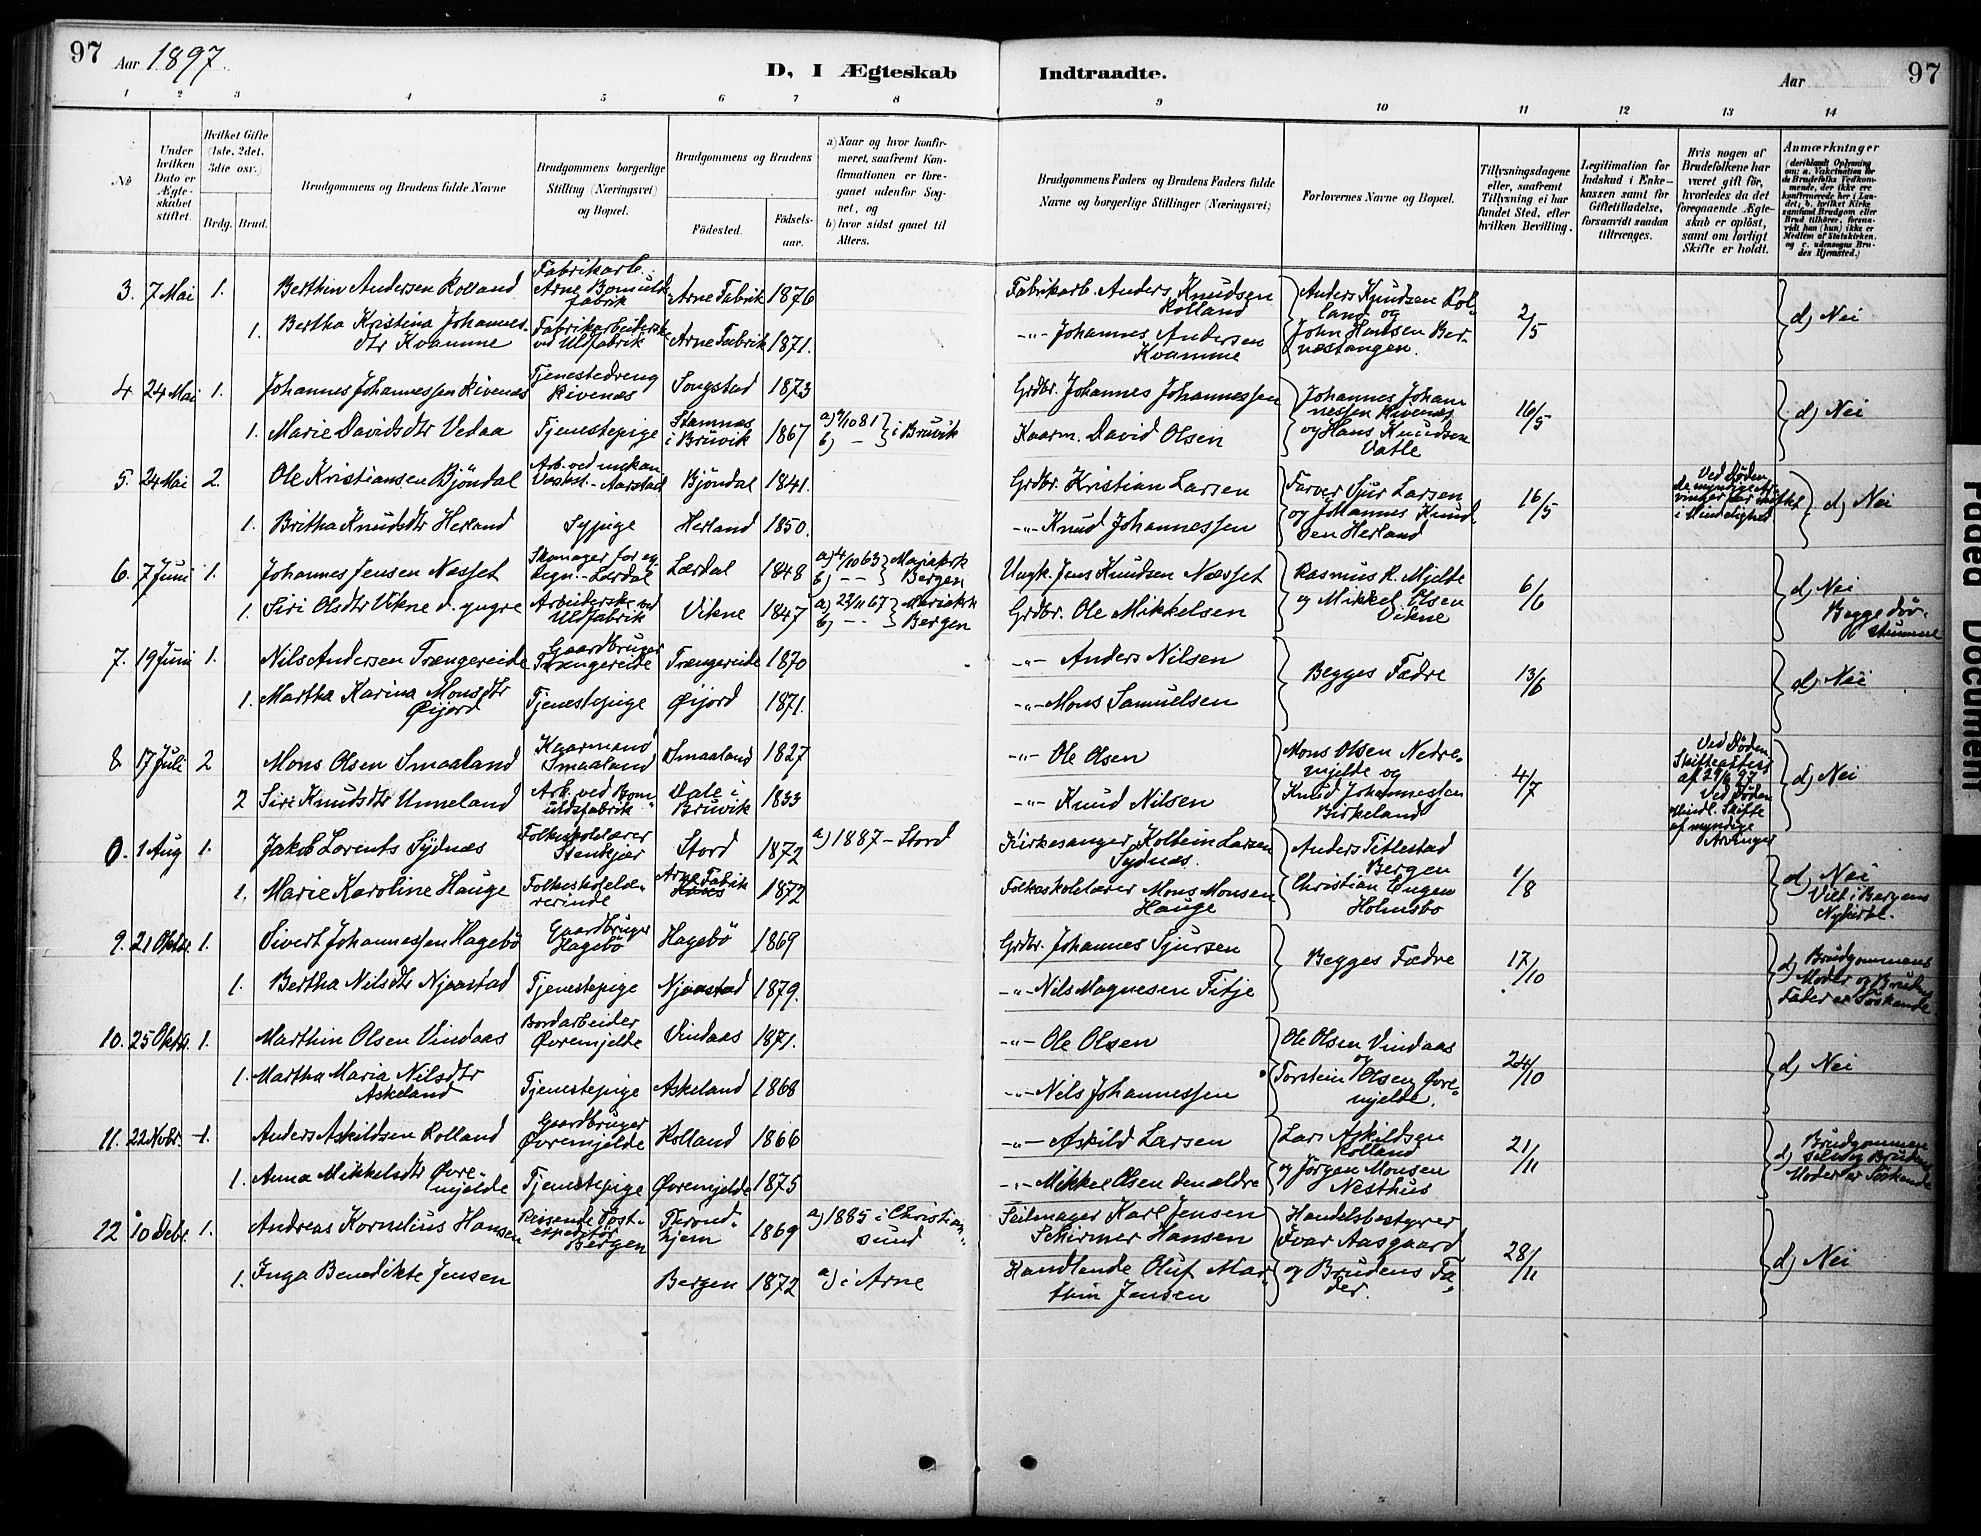 97 Aar 1897. D, I Ægteskab Indtraadte. Aar 97
1 2 3 4 5 6 7 8 9 10 11 12 13 14
No
Under hvilken Dato er Ægteskabet stiftet.
Hvilket Gifte (1ste, 2det, 3die osv.)
Brdg. Brud.
Brudgommens og Brudens fulde Navne
Brudgommens borgerlige Stilling (Næringsvei) og Bopæl.
Brudgommens og Brudens
Fødested.
Fødselsaar.
a) Naar og hvor konfirmeret, saafremt Konfirmationen er foregaaet udenfor Sognet, og
b) hvor sidst gaaet til Alters.
Brudgommens Faders og Brudens Faders fulde Navne og borgerlige Stillinger (Næringsvei)
Forlovernes Navne og Bopæl.
Tillysningsdagene eller, saafremt Tillysning ei har fundet Sted, efter hvilken Bevilling.
Legitimation for Indskud i Enkekassen samt for Giftetilladelse, forsaavidt saadan tiltrænges.
Hvis nogen af Brudefolkene har været gift før, hvorledes da det foregaaende Ægteskab er opløst, samt om lovligt Skifte er holdt.
Anmærkninger (deriblandt Oplysning om: a. Vaksination for de Brudefolks Vedkommende, der ikke ere konfirmerede her i Landet, b. hvilket Kirkesamfund Brudgom eller Brud tilhører, forsaavidt han (hun) ikke er Medlem af Statskirken, og c. udensogns Brudes Hjemsted.)
3. 7 Mai 1. Berthin Andersen Rolland Fabrikarb. Arne Bomuldsfabrik Arne Fabrik 1876 Fabrikarb. Anders Knudsen Rolland Anders Knudsen Rolland og 2/5 d) Nei
1. Bertha Kristina Johannesdtr Kvamme Fabrikarbeiderske ved Uldfabrik Arne Fabrik 1871. -"- Johannes Andersen Kvamme John Hansen Bernæstangen.
4 24 Mai 1. Johannes Johannessen Rivenæs Tjenestedreng Rivenæs Songstad 1873 Grdbr. Johannes Johannessen Johannes Johannessen Rivenæs 16/5 d) Nei
1. Marie Davidsdtr Vedaa Tjenestepige Stamnæs i Bruvik 1867 a) 9/10 81 b) - i Bruvik Kaarm. David Olsen og Hans Knudsen Vatle
5. 24 Mai 2. Ole Kristiansen Bjöndal Arb. ved mekan. Værkst. - Aarstad Bjöndal 1841. Grdbr. Kristian Larsen Farver Sjur Larsen 16/5 Ved Døden i Mindelighed d) Nei
1. Britha Knudsdtr Herland Sypige Herland 1850. -"- Knud Johannessen og Johannes Knudsen Herland
6. 7 Juni 1. Johannes Jensen Næsset Skomager for eg. Regn. - Lærdal Lærdal 1848 a) 4/10 63 b) - - Mariakrk Bergen Ungk. Jens Knudsen Næsset Rasmus R. Mjelte 6/6 d) Nei
1. Siri Olsdtr Vikne d. yngre Arbeiderske ved Uldfabrik Vikne 1847 a) 22/11 67 b) - - Mariakrk Bergen Grdbr. Ole Mikkelsen og Mikkel Olsen Vikne Begge døvstumme
7. 19 Juni 1. Nils Andersen Trængereide Gaardbruger Trængereide Trængereide 1870 -"- Anders Nilsen Begges Fædre 13/6 d) Nei
1. Martha Karina Monsdtr Øijord Tjenestepige Øijord 1871. -"- Mons Samuelsen
8. 17 Juli 2 Mons Olsen Smaaland Kaarmand Smaaland Smaaland 1827 -"- Ole Olsen Mons Olsen Nedremjelde og 4/7 Ved Døden Skifteattest d) Nei
2 Siri Knudsdtr Unneland Arb. ved Bomuldsfabrik Dale i Bruvik 1833 -"- Knud Nilsen Knud Johannessen Birkeland Ved Døden Mindl. Skifte af myndige Arvinger
0. 1 Aug 1. Jakob Lorents Sydnæs Folkeskolelærer Stenkjær Stord 1872 a) 1887 - Stord Kirkesanger Kolbein Larsen Sydnæs. Anders Titlestad Bergen 1/8 d) Nei
1. Marie Karoline Hauge Folkeskolelærerinde Arne Fabrik 1872 Folkeskolelærer Mons Monsen Hauge Christian Eugen Holmsbo Viet i Bergens Nykirke.
9. 21 Oktbr. 1. Sivert Johannessen Hagebö Gaardbruger Hagebö Hagebö 1869 Grdbr. Johannes Sjursen Begges Fædre 17/10 d) Brudgommens Moder og Brudens Fader er Söskende.
1. Bertha Nilsdtr Njaastad Tjenestepige Njaastad 1879. -"- Nils Magnesen Titje
10. 25 Oktbr. 1. Marthin Olsen Vindaas Bordarbeider Øvremjelde Vindaas 1871. -"- Ole Olsen Ole Olsen Vindaas og 24/10 d) Nei
1. Martha Maria Nilsdtr Askeland Tjenestepige Askeland 1868 -"- Nils Johannessen Torstein Olsen Øvremjelde.
11. 22 Novbr. 1. Anders Askildsen Rolland Gaardbruger Øvremjelde Rolland 1866 -"- Askild Larsen Lars Askildsen Rolland 21/11 d) Brudgommen Brudens Moder er Söskende
1. Anna Mikkelsdtr Øvremjelde Tjenestepige Øvremjelde 1875 -"- Mikkel Olsen den ældre og Jörgen Monsen Nesthus
12 10 Debr. 1. Andreas Kornelius Hansen Reisende Postexpeditør Bergen Throndhjem 1869 a) 1885 i Christiansund Seilmager Karl Jensen Schirmer Hansen Handelsbestyrer Ivar Aasgaard 28/11 d) Nei
1. Inga Benedikte Jensen Bergen 1872 a) i Arne Handlende Oluf Marthin Jensen og Brudens Fader.
Faded Document